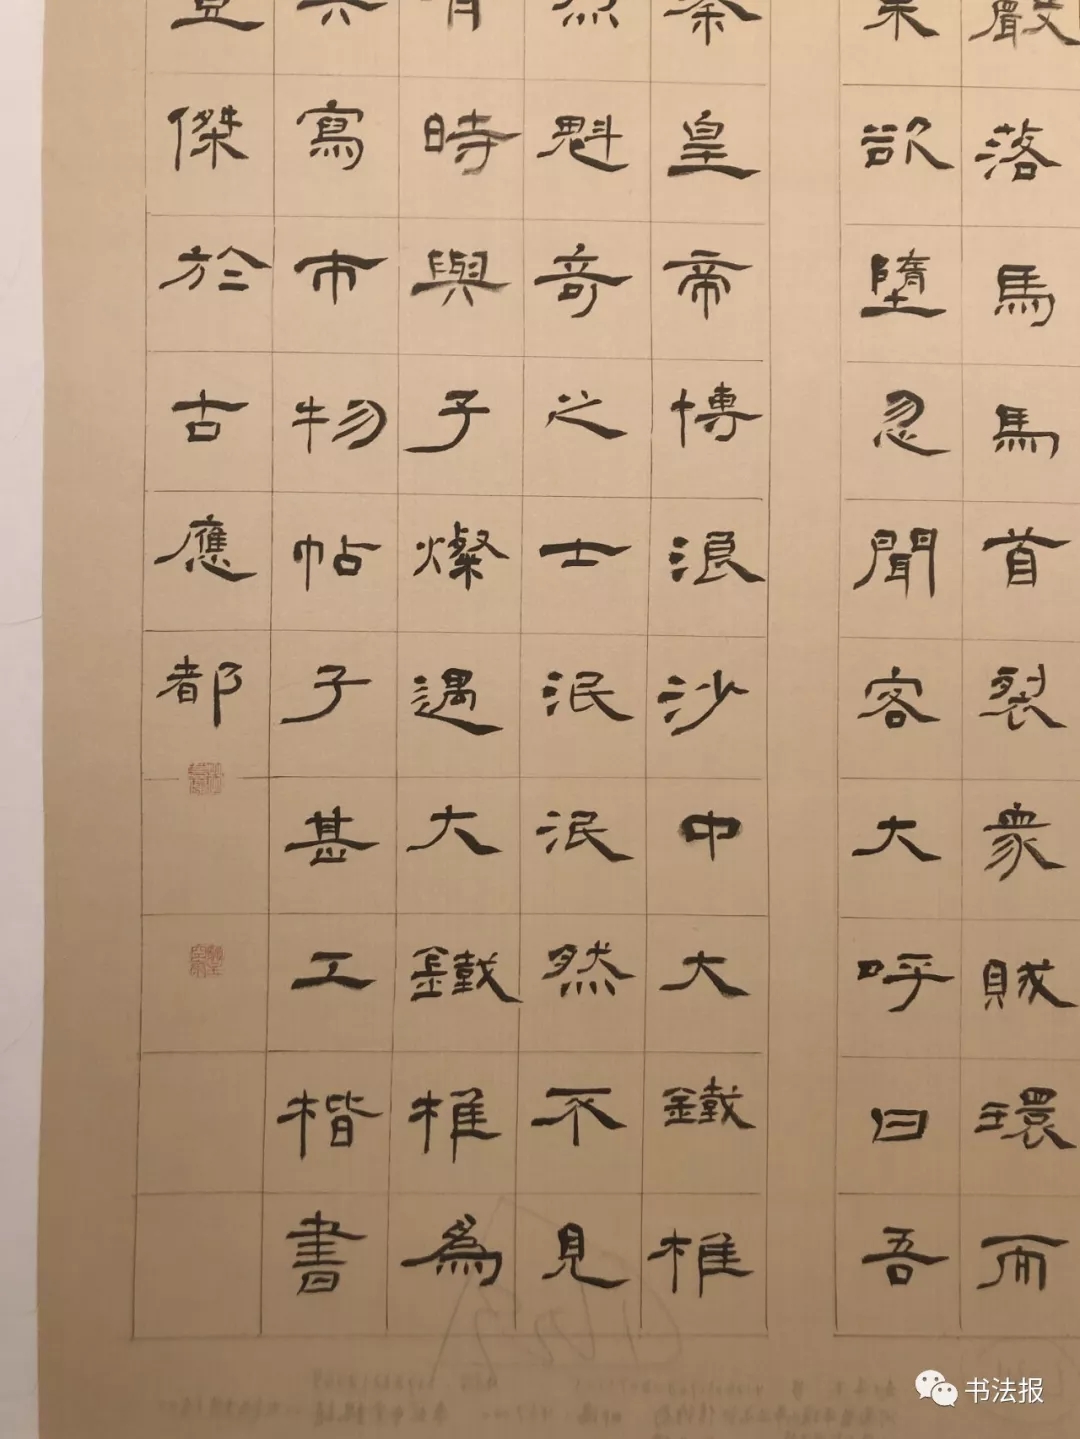 嚴落馬馬首裂眾賊環而
欲墮忽聞客大呼曰吾
秦皇帝博浪沙中大鐵椎
然魁奇之士泯泯然不見
時與子燦遇大鐵椎為
寫市物帖子甚工楷書
傑於古應都
书法报